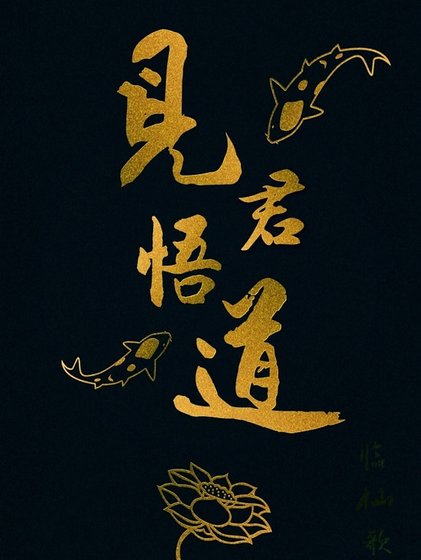 見君悟道
臨仙歌